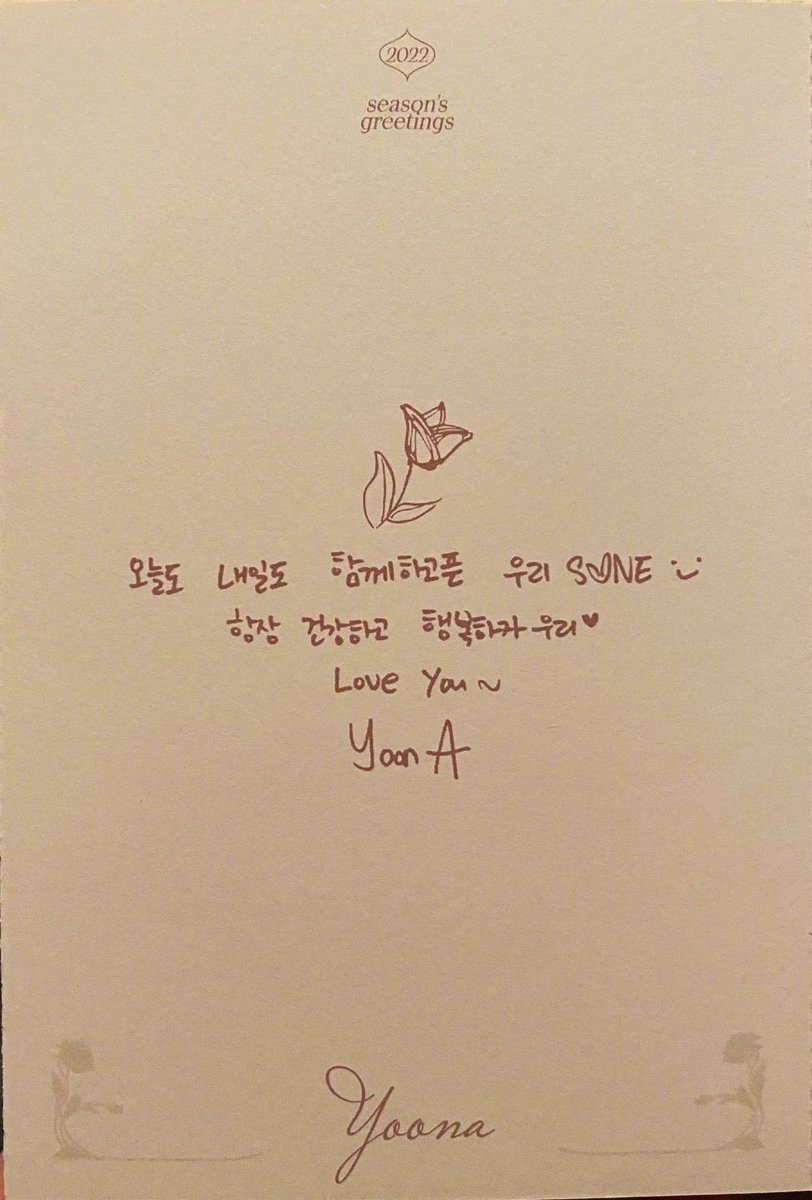 2022
season's
greetings
오늘도 내일도 함께하고픈 우리 S♡NE :)
항상 건강하고 행복하자 우리♥
Love You~
YoonA
Yoona